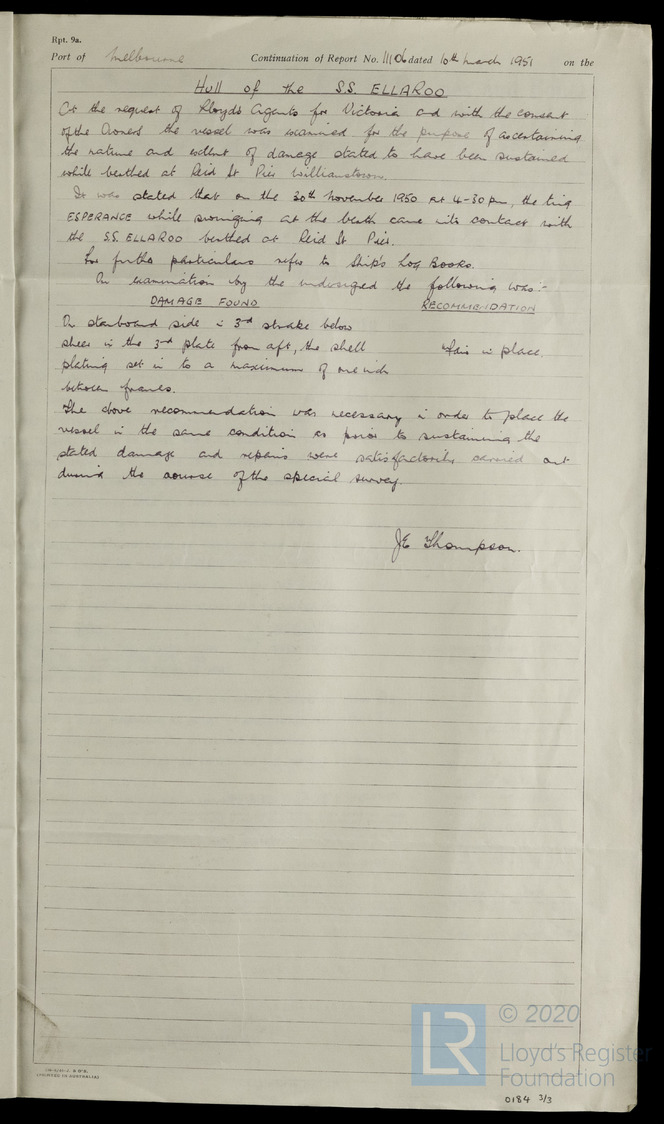 Rpt. 9a.
Port of Melbourne Continuation of Report No. 11106 dated 10th March 1951 on the
Hull of the S.S. ELLAROO
At the request of Lloyds Agents for Victoria and with the consent
of the Owners the vessel was examined for the purpose of ascertaining
the nature and extent of damage stated to have been sustained
while berthed at Reid St Pier Williamstown.
It was stated that on the 30th November 1950 at 4-30 pm, the tug
ESPERANCE while swinging at the berth came into contact with
the S.S. ELLAROO berthed at Reid St Pier.
For further particulars refer to Ship's Log Books.
On examination by the undersigned the following was:-
DAMAGE FOUND RECOMMENDATION
On starboard side in 3rd strake below
sheer in the 3rd plate from aft, the shell Fair in place.
plating set in to a maximum of one inch
between frames.
The above recommendation was necessary in order to place the
vessel in the same condition as prior to sustaining the
stated damage and repairs were satisfactorily carried out
during the course of the special survey.
JE Thompson.
LR © 2020
Lloyd's Register
Foundation
0184 3/3